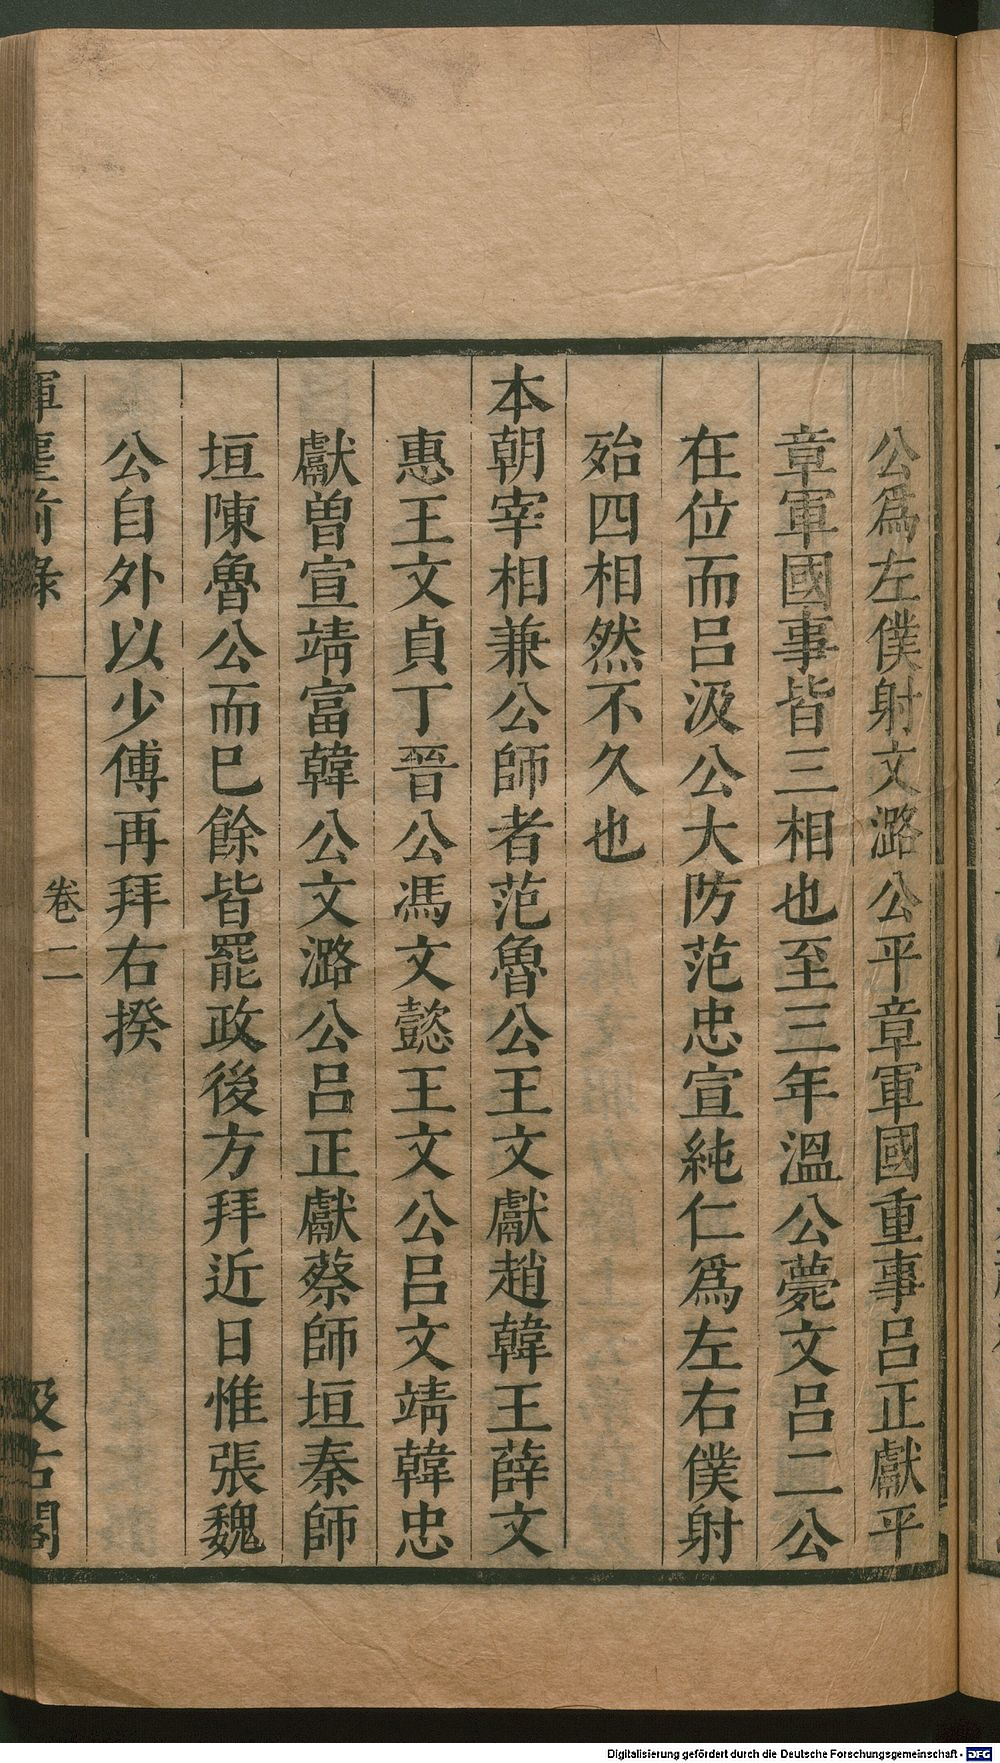 公爲左僕射文潞公平章軍國重事呂正獻平
章軍國事皆三相也至三年溫公薨文呂二公
在位而呂汲公大防范忠宣純仁爲左右僕射
殆四相然不久也
本朝宰相兼公師者范魯公王文獻趙韓王薛文
惠王文貞丁晉公馮文懿王文公呂文靖韓忠
獻曾宣靖富韓公文潞公呂正獻蔡師垣秦師
垣陳魯公而巳餘皆罷政後方拜近日惟張魏
公自外以少傅再拜右揆
揮麈前錄 卷二 汲古閣
Digitalisierung gefördert durch die Deutsche Forschungsgemeinschaft - DFG